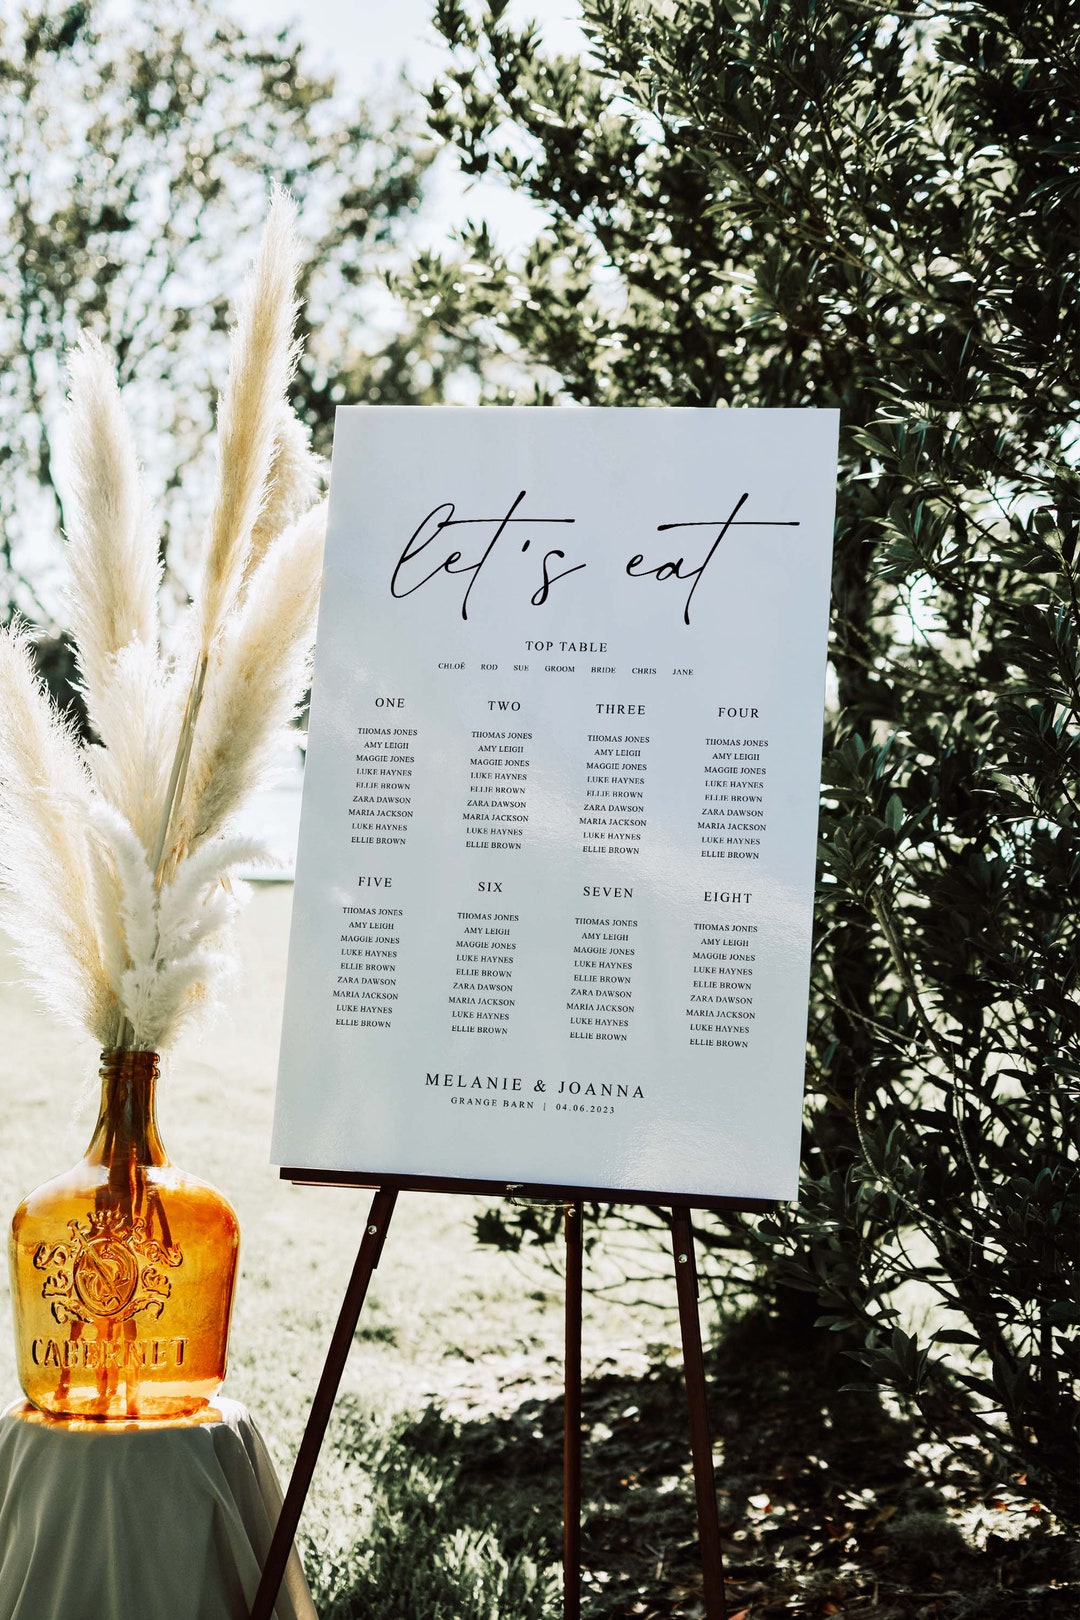 let's eat
TOP TABLE
CHLOË ROD SUE GROOM BRIDE CHRIS JANE
ONE
THOMAS JONES
AMY LEIGH
MAGGIE JONES
LUKE HAYNES
ELLIE BROWN
ZARA DAWSON
MARIA JACKSON
LUKE HAYNES
ELLIE BROWN
TWO
THOMAS JONES
AMY LEIGH
MAGGIE JONES
LUKE HAYNES
ELLIE BROWN
ZARA DAWSON
MARIA JACKSON
LUKE HAYNES
ELLIE BROWN
THREE
THOMAS JONES
AMY LEIGH
MAGGIE JONES
LUKE HAYNES
ELLIE BROWN
ZARA DAWSON
MARIA JACKSON
LUKE HAYNES
ELLIE BROWN
FOUR
THOMAS JONES
AMY LEIGH
MAGGIE JONES
LUKE HAYNES
ELLIE BROWN
ZARA DAWSON
MARIA JACKSON
LUKE HAYNES
ELLIE BROWN
FIVE
THOMAS JONES
AMY LEIGH
MAGGIE JONES
LUKE HAYNES
ELLIE BROWN
ZARA DAWSON
MARIA JACKSON
LUKE HAYNES
ELLIE BROWN
SIX
THOMAS JONES
AMY LEIGH
MAGGIE JONES
LUKE HAYNES
ELLIE BROWN
ZARA DAWSON
MARIA JACKSON
LUKE HAYNES
ELLIE BROWN
SEVEN
THOMAS JONES
AMY LEIGH
MAGGIE JONES
LUKE HAYNES
ELLIE BROWN
ZARA DAWSON
MARIA JACKSON
LUKE HAYNES
ELLIE BROWN
EIGHT
THOMAS JONES
AMY LEIGH
MAGGIE JONES
LUKE HAYNES
ELLIE BROWN
ZARA DAWSON
MARIA JACKSON
LUKE HAYNES
ELLIE BROWN
MELANIE & JOANNA
GRANGE BARN | 04.06.2023
CABERNET